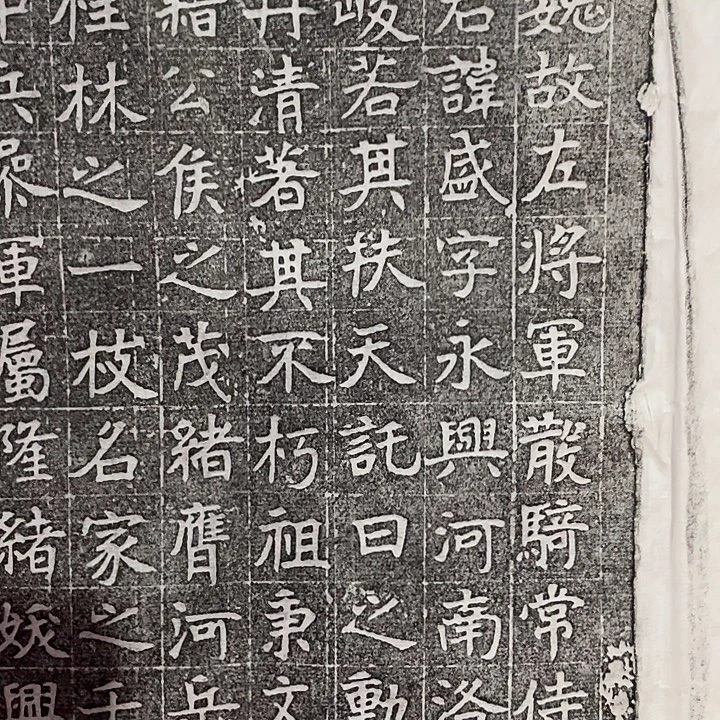 魏故左將軍散騎常侍
君諱盛字永興河南洛
峻若其扶天託日之勳
丹清著其不朽祖秉文
籍公侯之茂緒膺河岳
桂林之一枝名家之千
中兵參軍屬隆緒妖興